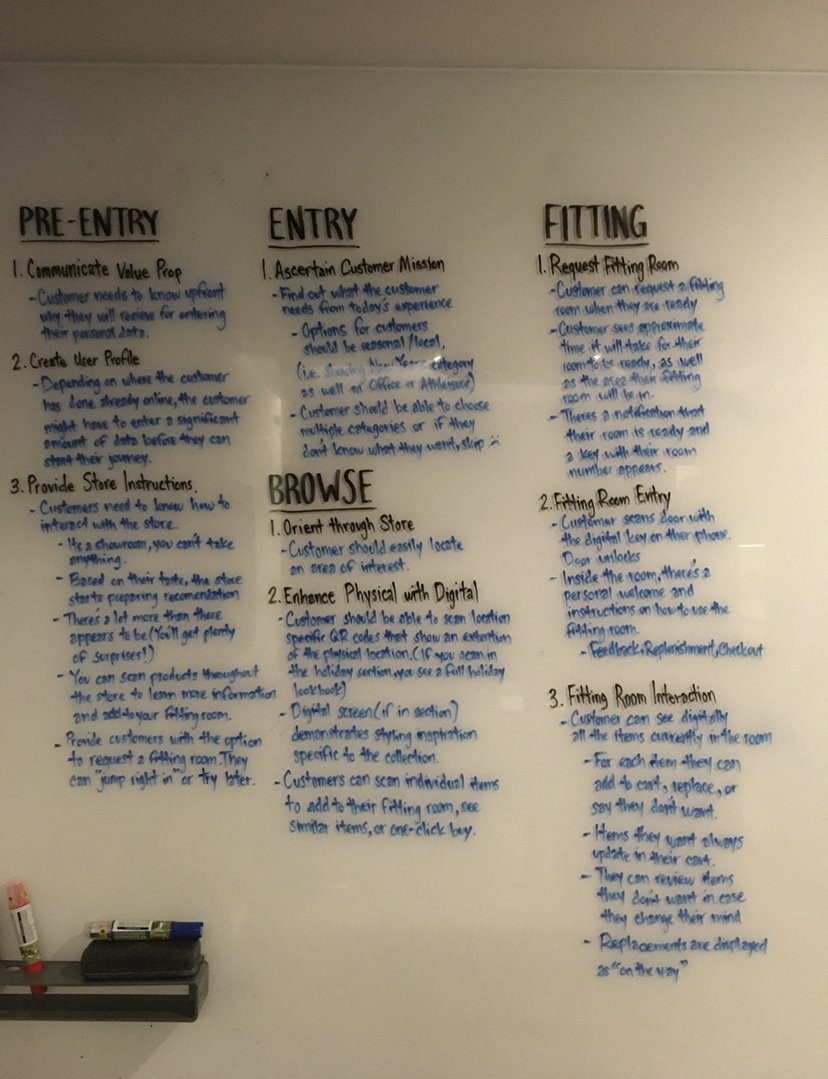 PRE-ENTRY
1. Communicate Value Prop
- Customer needs to know upfront
why they will recieve for entering
their personal data.
2. Create User Profile
- Depending on where the customer
has done already online, the customer
might have to enter a significant
amount of data before they can
start their journey.
3. Provide Store Instructions.
- Customers need to know how to
interact with the store.
- Its a showroom, you can't take
anything.
- Based on their taste, the store
starts preparing recomendation
- There's a lot more than there
appears to be (You'll get plenty
of surprises!)
- You can scan products throughout
the store to learn more information
and add to your fitting room.
- Provide customers with the option
to request a fitting room. They
can "jump right in" or try later.
ENTRY
1. Ascertain Customer Mission
- Find out what the customer
needs from today's experience
- Options for customers
should be seasonal/local,
(i.e. New Years category
as well as Office or Athleisure)
- Customer should be able to choose
multiple categories or if they
don't know what they want, skip
BROWSE
1. Orient through Store
- Customer should easily locate
an area of interest.
2. Enhance Physical with Digital
- Customer should be able to scan location
specific QR codes that show an extention
of the physical location. (If you scan in
the holiday section, you see a full holiday
lookbook)
- Digital screen (if in section)
demonstrates styling inspiration
specific to the collection.
- Customers can scan individual items
to add to their fitting room, see
similar items, or one-click buy.
FITTING
1. Request Fitting Room
- Customer can request a fitting
room when they are ready
- Customer sees approximate
time it will take for their
room to be ready, as well
as the area their fitting
room will be in.
- Theres a notification that
their room is ready and
a key with their room
number appears.
2. Fitting Room Entry
- Customer scans door with
the digital key on their phone.
Door unlocks
- Inside the room, there's a
personal welcome and
instructions on how to use the
fitting room.
- Feedback, Replenishment, Checkout
3. Fitting Room Interaction
- Customer can see digitally
all the items currently in the room
- For each item they can
add to cart, replace, or
say they don't want.
- Items they want always
update in their cart.
- They can review items
they don't want in case
they change their mind
- Replacements are displayed
as "on the way"